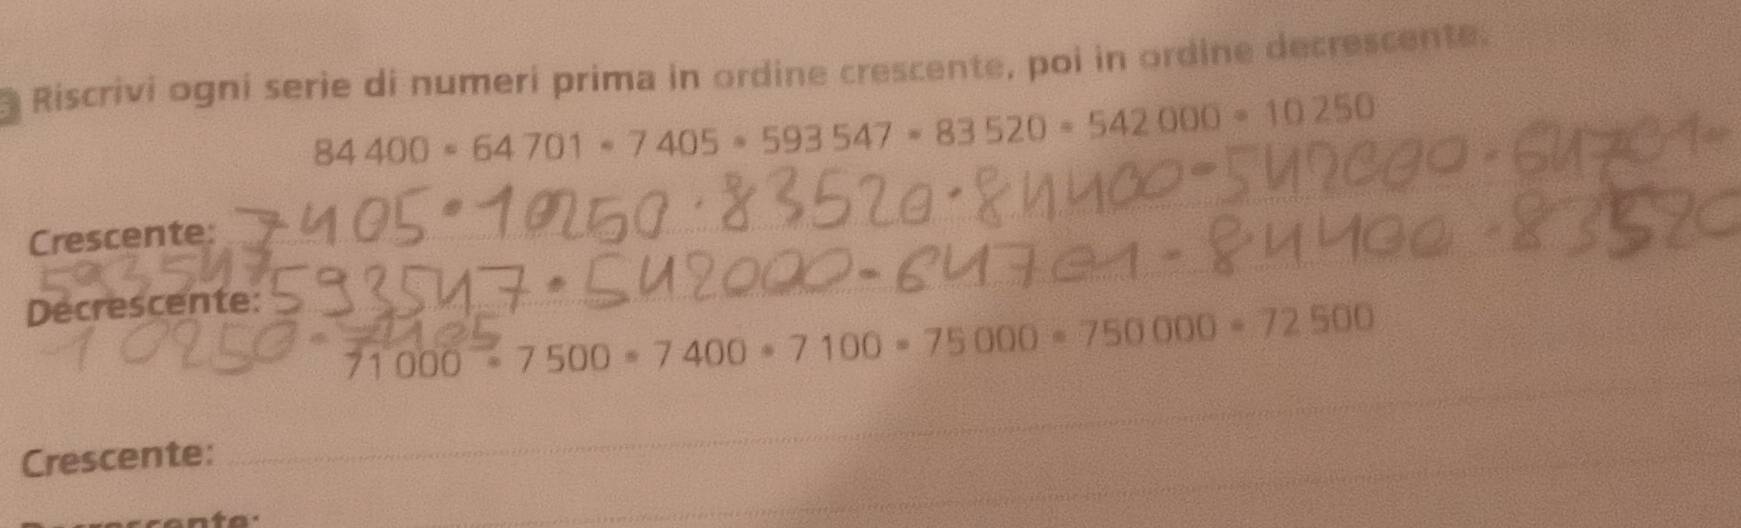 Riscrivi ogni serie di numeri prima in ordine crescente, poi in ordine decrescente.
84 400 • 64 701 • 7 405 • 593 547 • 83 520 • 542 000 • 10 250
Crescente: 7405 • 10250 • 83520 • 84400 - 542000 • 64701 -
593547
Decrescente: 593547 • 542000 - 64701 - 84400 • 83520
10250 • 7405
71 000 • 7 500 • 7 400 • 7 100 • 75 000 • 750 000 • 72 500
Crescente: